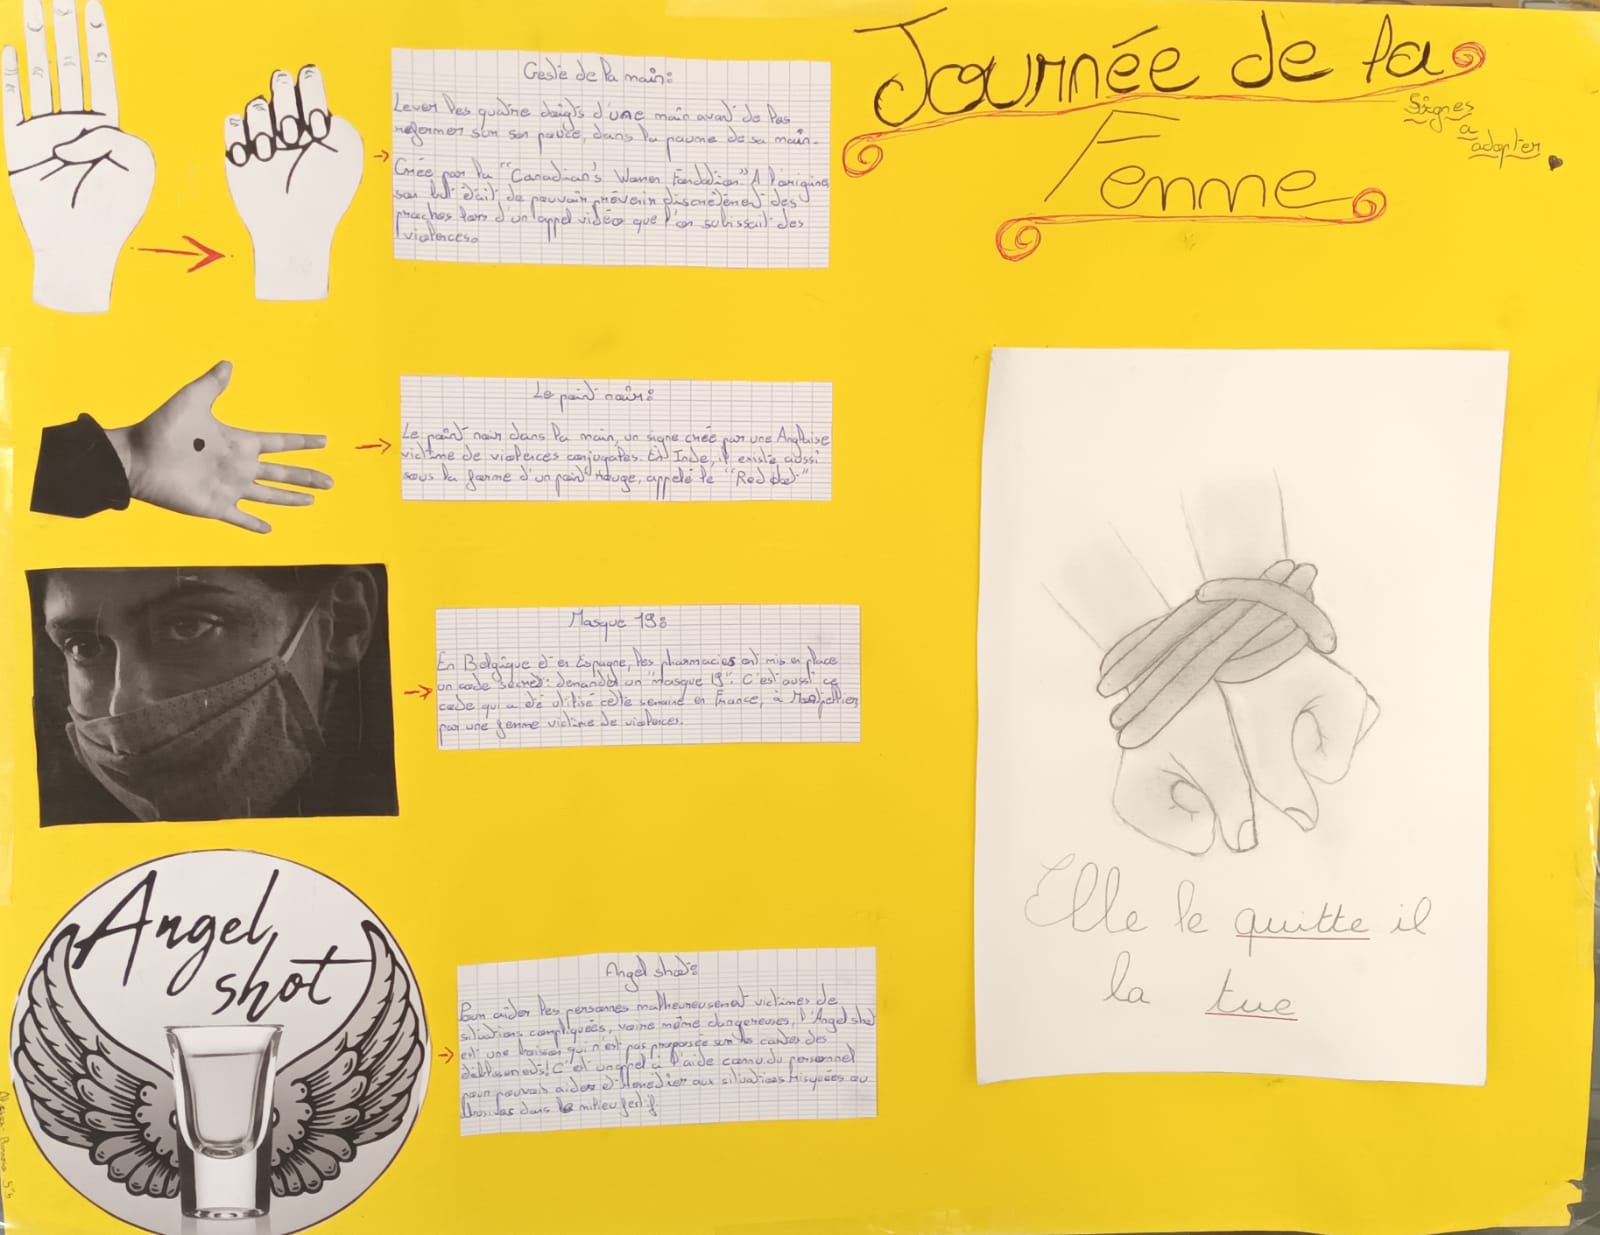 Journée de la
Femme
Signes
a
adopter
Geste de la main:
Lever les quatre doigts d'une main avant de les
refermer sur son pouce, dans la paume de sa main.
Créée par la "Canadian's Women Fondation" A l'origine
son but était de pouvoir prévenir discrètement des
proches lors d'un appel vidéo que l'on subissait des
violences.
Le point noir:
Le point noir dans la main, un signe créé par une Anglaise
victime de violences conjugales. En Inde, il existe aussi
sous la forme d'un point rouge, appelé le "Red dot"
Masque 19:
En Belgique et en Espagne, les pharmacies ont mis en place
un code secret: demander un "Masque 19". C'est aussi ce
code qui a été utilisé cette semaine en France, à Montpellier
par une femme victime de violences.
Angel
shot
Angel shot:
Pour aider les personnes malheureusement victimes de
situations compliquées, voire même dangereuses, l'Angel shot
est une boisson qui n'est pas proposée sur les cartes des
établissements! C'est un appel à l'aide connu du personnel
pour pouvoir aider et remédier aux situations risquées ou
abusives dans le milieu festif.
Elle le quitte il
la tue